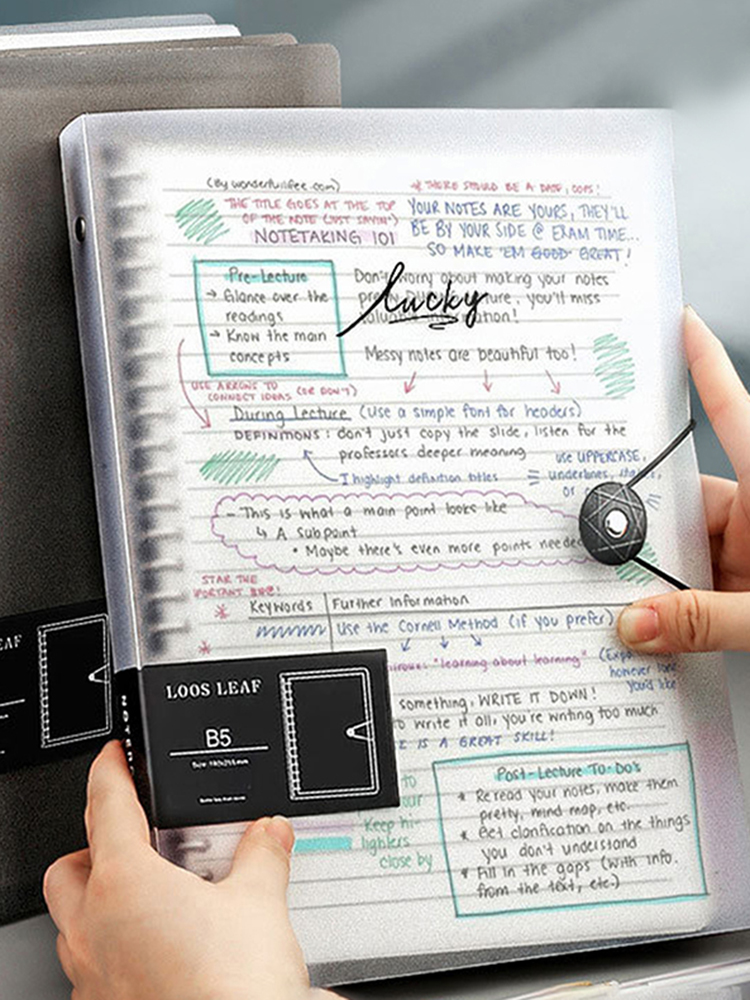 (By wonderfullifee.com)
* THERE SHOULD BE A DATE, OOPS!
THE TITLE GOES AT THE TOP
OF THE NOTE (JUST SAYIN')
NOTETAKING 101
YOUR NOTES ARE YOURS, THEY'LL
BE BY YOUR SIDE @ EXAM TIME...
SO MAKE 'EM GOOD GREAT!
Pre-Lecture
→ Glance over the
readings
→ Know the main
concepts
Don't worry about making your notes
you'll miss
lucky
Messy notes are beautiful too!
USE ARROWS TO
CONNECT IDEAS (OR DON'T)
During Lecture (Use a simple font for headers)
DEFINITIONS: don't just copy the slide, listen for the
professors deeper meaning
I highlight definition titles
use UPPERCASE,
underlines,
or
- This is what a main point looks like
↳ A Subpoint
• Maybe there's even more points
STAR THE
Keywords
Further Information
Use the Cornell Method (if you prefer)
"learning about learning"
however long
you'd like
something, WRITE IT DOWN!
to write it all, you're writing too much
IS A GREAT SKILL!
LOOS LEAF
B5
to
Keep hi-
lighters
close by
Post-Lecture To-Do's
* Reread your notes, make them
pretty, mind map, etc.
* Get clarification on the things
you don't understand
* Fill in the gaps (with info.
from the text, etc.)
LEAF